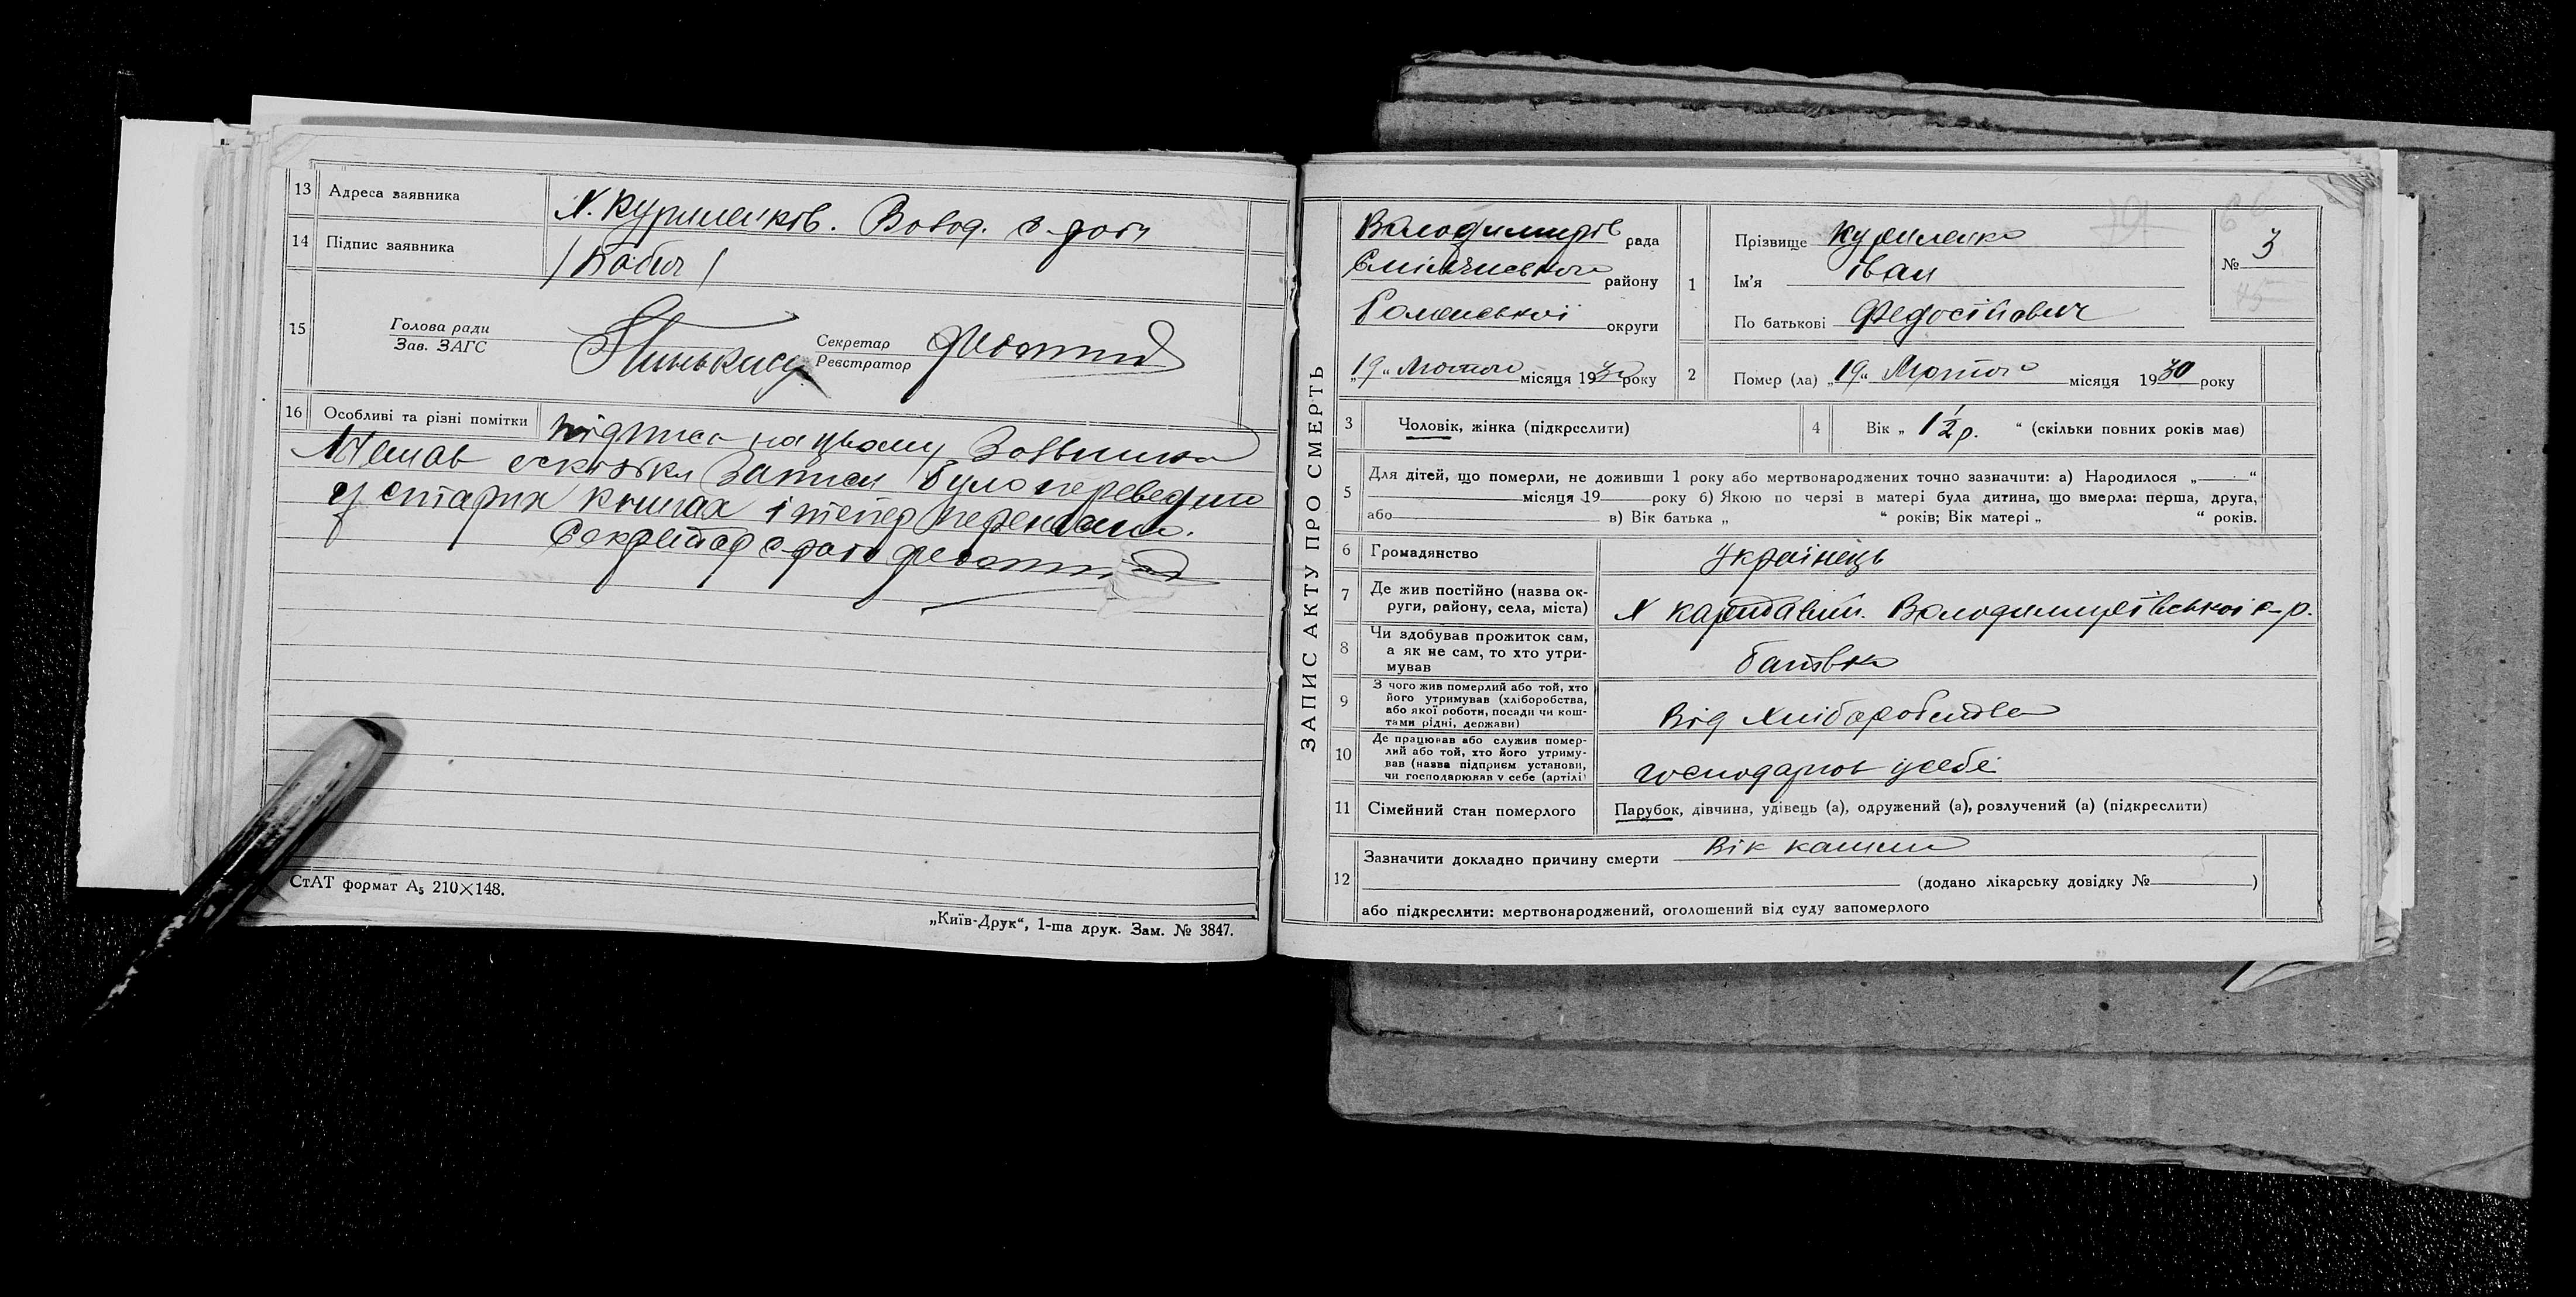 13 Адреса заявника Х. Куриленків. Волод. с-ради
14 Підпис заявника /Бабич/
15 Голова ради
Зав. ЗАГС
Секретар
Реєстратор
16 Особливі та різні помітки підписа на цьому Заявника
Немає оскільки Записи було переведено
у старих книгах і тепер переписано.
Секретар с-ради
СтАТ формат А₅ 210×148.
„Київ-Друк“, 1-ша друк. Зам. № 3847.
ЗАПИС АКТУ ПРО СМЕРТЬ
Володимирів рада
Смілянського району
Роменської округи
„19“ Лютого місяця 1930 року
1 Прізвище Куриленко
Ім'я Іван
По батькові Федосійович
№ 3
2 Помер (ла) „19“ Лютого місяця 1930 року
3 Чоловік, жінка (підкреслити)
4 Вік „ 12р. “ (скільки повних років має)
5 Для дітей, що померли, не доживши 1 року або мертвонароджених точно зазначити: а) Народилося „ “
місяця 19 року б) Якою по черзі в матері була дитина, що вмерла: перша, друга,
або в) Вік батька „ “ років; Вік матері „ “ років.
6 Громадянство Українець
7 Де жив постійно (назва ок-
руги, району, села, міста) Х Володимирівської с-р.
8 Чи здобував прожиток сам,
а як не сам, то хто утри-
мував батько
9 З чого жив померлий або той, хто
його утримував (хліборобства,
або якої роботи, посади чи кош-
тами рідні, держави) Від Хліборобства
10 Де працював або служив помер-
лий або той, хто його утриму-
вав (назва підприєм. установи,
чи господарював у себе (артілі) господарював у себе
11 Сімейний стан померлого Парубок, дівчина, удівець (а), одружений (а), розлучений (а) (підкреслити)
12 Зазначити докладно причину смерти Від кашлю
(додано лікарську довідку № )
або підкреслити: мертвонароджений, оголошений від суду запомерлого